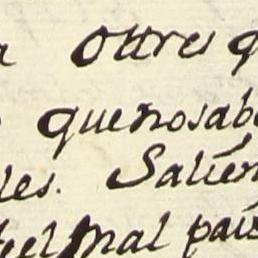 a Ottres q
quenosab
les. Salien
el mal pais